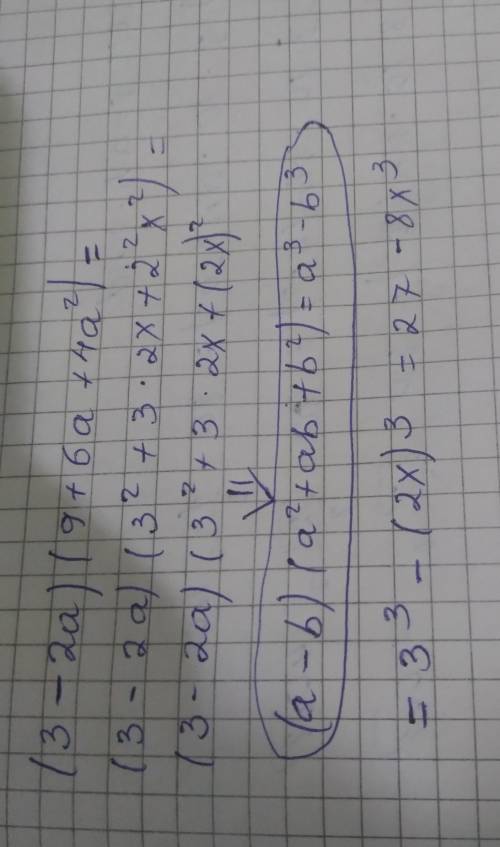 (3 - 2a) (9 + 6a + 4a²) =
(3 - 2a) (3² + 3 · 2x + 2² x²) =
(3 - 2a) (3² + 3 · 2x + (2x)²
(a - b) (a² + ab + b²) = a³ - b³
= 3³ - (2x)3 = 27 - 8x³